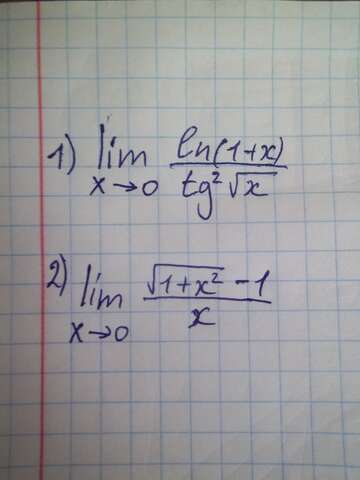 1) lim x→0 ln(1+x) / tg² √x
2) lim x→0 (√(1+x²) - 1) / x